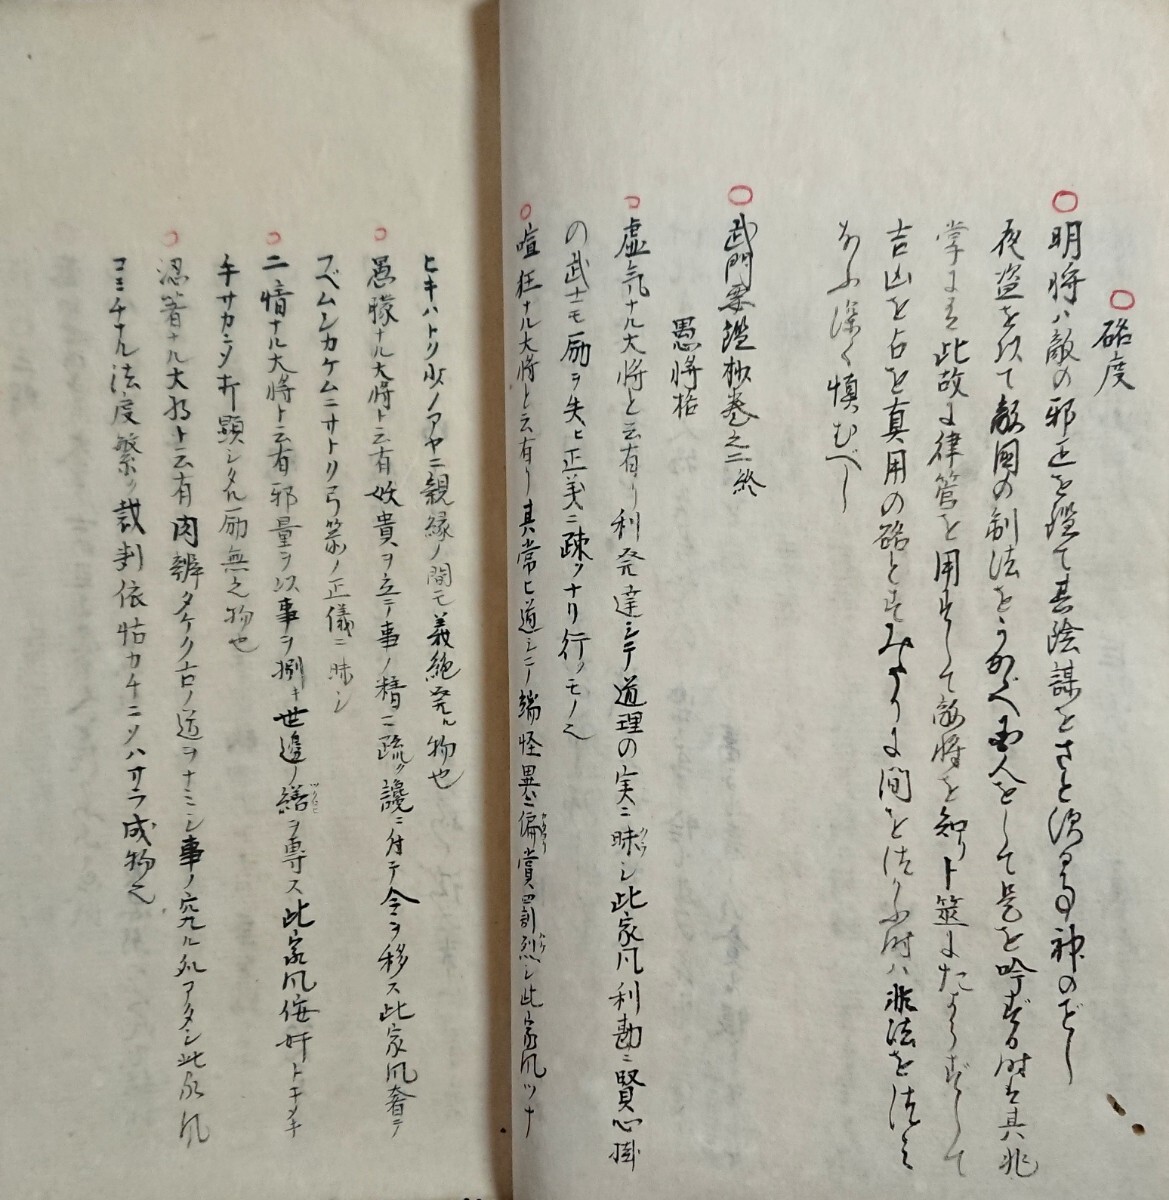 略度
明将ハ敵の邪正を鑑て其陰謀をさと須る事神のごとし
夜盗を以て敵国の制法をうかゞへ人をして是を吟ずる時は其兆
掌にす此故に律管を用ずして敵将を知り卜筮によらずして
吉凶を占を真用の略とすみだりに間を法ふ時ハ非法を法に
あふ深く慎むべし
武門要鑑抄巻之二終
愚将格
虚気ナル大将と云有り利発達シテ道理の実ニ味シ此家凡利勘ニ賢心掛
の武士モ励ヲ失ヒ正義ニ疎クナリ行クモノ也
喧狂ナル大将と云有り其常ヒ道シテ端怪異ニ偏賞罰烈シ此家凡ツナ
ヒキハトリ少ノアヤニ親縁ノ間モ義絶発ル物也
愚朦ナル大将ト云有妖貴ヲ立テ事ノ精ニ疏ク讒ニ付テ令ヲ移ス此家凡奢テ
スヾムシカケムニサトリ弓箭ノ正儀ニ味シ
二情ナル大将ト云有邪量ヲ以事ヲ捌キ世邊ノ繕ヲ専ス此家凡侮奸トキメキ
チサカシタ折顕シタル励無之物也
忍著ナル大将ト云有肉辨タケク古ノ道ヲナミシ事ノ究ル処アタシ此家凡
コミチナル法度繁ク裁判依怙カチニソハサラ成物也